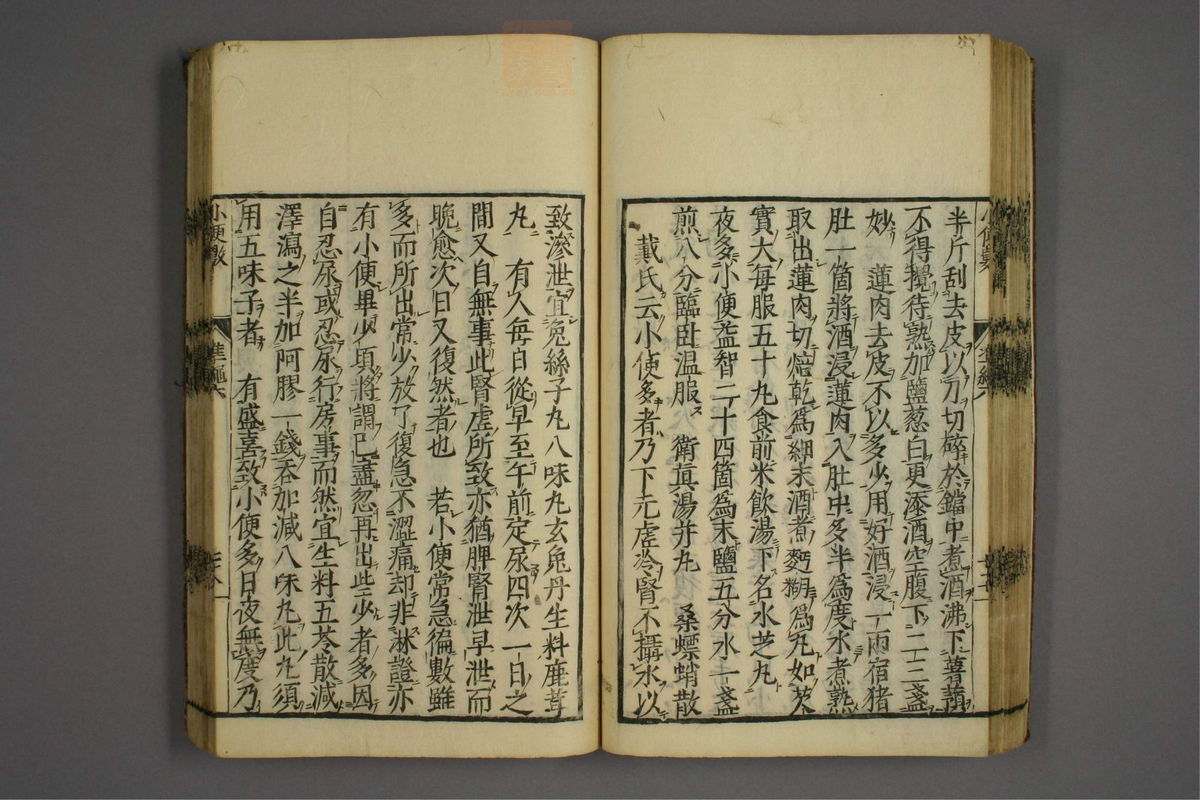 半斤刮去皮以刀切碎於鐺中煮酒沸下薯蕷
不得攪待熟加鹽葱白更添酒空腹下二三盞
妙　蓮肉去皮不以多少用好酒浸一兩宿猪
肚一箇將酒浸蓮肉入肚中多半為度水煮熟
取出蓮肉切焙乾為細末酒煮麪糊為丸如芡
實大每服五十丸食前米飲湯下名水芝丸
夜多小便益智二十四箇為末鹽五分水一盞
煎八分臨臥温服　衛真湯并丸　桑螵蛸散
戴氏云小便多者乃下元虛冷腎不攝水以
致滲泄宜兔絲子丸八味丸玄兔丹生料鹿茸
丸　有人每日從早至午前定尿四次一日之
間又自無事此腎虛所致亦猶脾腎泄早泄而
晚愈次日又復然者也　若小便常急徧數雖
多而所出常少放了復急不澀痛却非淋證亦
有小便畢少頃將謂已盡忽再出些少者多因
自忍尿或忍尿行房事而然宜生料五苓散減
澤瀉之半加阿膠一錢吞加減八味丸此丸須
用五味子者　有盛喜致小便多日夜無度乃
小便數
準繩六